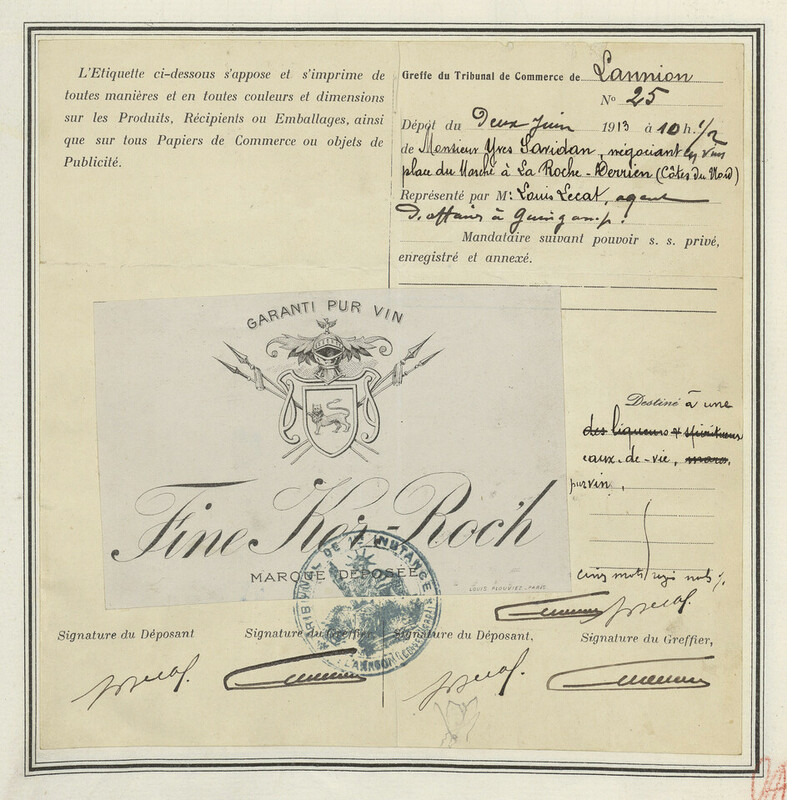 L'Etiquette ci-dessous s'appose et s'imprime de
toutes manières et en toutes couleurs et dimensions
sur les Produits, Récipients ou Emballages, ainsi
que sur tous Papiers de Commerce ou objets de
Publicité.
Greffe du Tribunal de Commerce de Lannion
No 25
Dépôt du Deux Juin 1913 à 10 h. 1/2
de Monsieur Yves Saridan, négociant en vins
place du Marché à La Roche-Derrien (Côtes du Nord)
Représenté par Mr Louis Lecat, agent
D'affaires à Guingamp.
Mandataire suivant pouvoir s. s. privé,
enregistré et annexé.
GARANTI PUR VIN
Fine Ker-Roc'h
MARQUE DÉPOSÉE
LOUIS PLOUVIEZ, PARIS
Destiné à une
des liqueurs & spiritueux
eaux-de-vie, marc,
pur vin.
cinq mots rayés nuls
TRIBUNAL DE 1RE INSTANCE
LANNION
Signature du Déposant
Signature du Greffier,
Signature du Déposant,
Signature du Greffier,